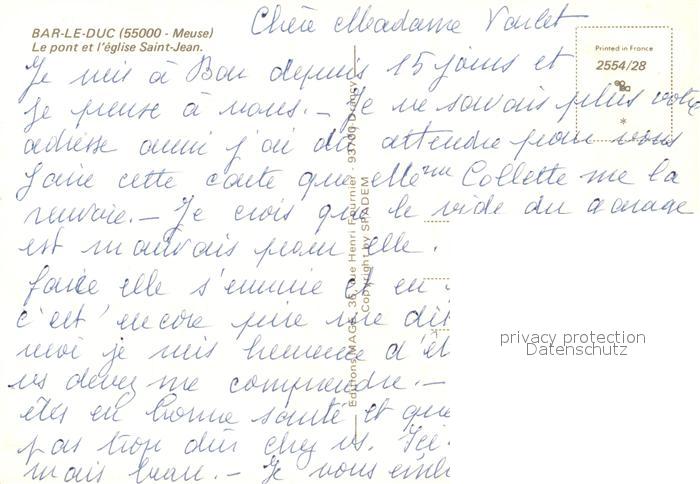 BAR-LE-DUC (55000 - Meuse)
Le pont et l'église Saint-Jean.
Printed in France
2554/28
Chère Madame Varlet
Je suis à Bar depuis 15 jours et
je pense à vous. - Je ne savais plus votre
adresse aussi j'ai dû attendre pour vous
faire cette carte que Melle Collette me la
renvoie. - Je crois que le vide du garage
est mauvais pour elle.
elle s'ennuie et en
c'est encore pire me dis
moi je suis heureuse d'êt
vs devez me comprendre. -
êtes en bonne santé et que
pas trop dur chez vs. Ici
mais beau. - Je vous emb
Editions MAGE, 36, rue Henri Fournier - 93700 Drancy
Copyright by SPADEM
privacy protection
Datenschutz